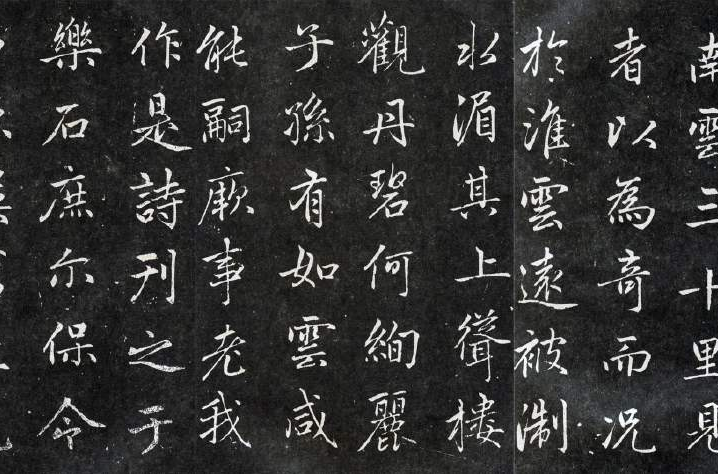 南雲三十里見
者以為奇而况
於淮雲遠被淛
水湄其上聳樓
觀丹碧何絢麗
子孫有如雲咸
能嗣厥事老我
作是詩刊之于
樂石庶尔保令